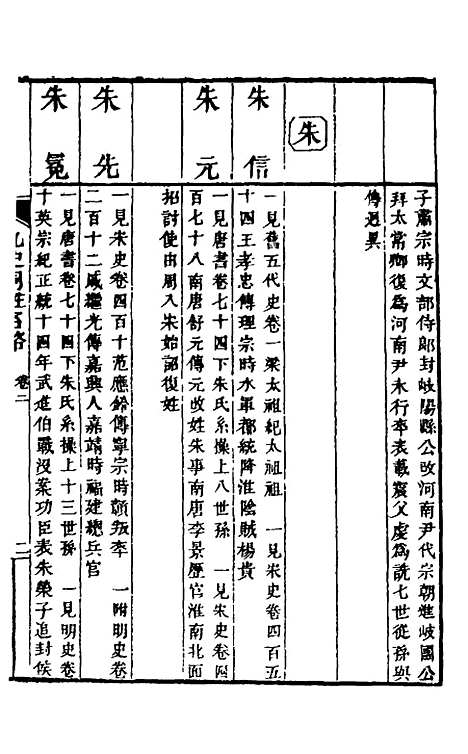 子肅宗時文部侍郎封岐陽縣公改河南尹代宗朝進岐國公
拜太常卿復爲河南尹未行卒表載寰父虔爲詵七世從孫與
傳迥異
朱
朱信
一見舊五代史卷一梁太祖紀太祖祖 一見宋史卷四百五
十四王孝忠傳理宗時水軍都統降淮陰賊楊貴
朱元
一見唐書卷七十四下朱氏系操上八世孫 一見宋史卷四
百七十八南唐舒元傳元改姓朱事南唐李景歷官淮南北面
招討使由周入宋始詔復姓
朱先
一見宋史卷四百十范應鈴傳寧宗時贛叛卒 一附明史卷
二百十二戚繼光傳嘉興人嘉靖時福建總兵官
朱冕
一見唐書卷七十四下朱氏系操上十三世孫 一見明史卷
十英宗紀正統十四年武進伯戰沒案功臣表朱榮子追封侯
九史同姓名略 卷二 二